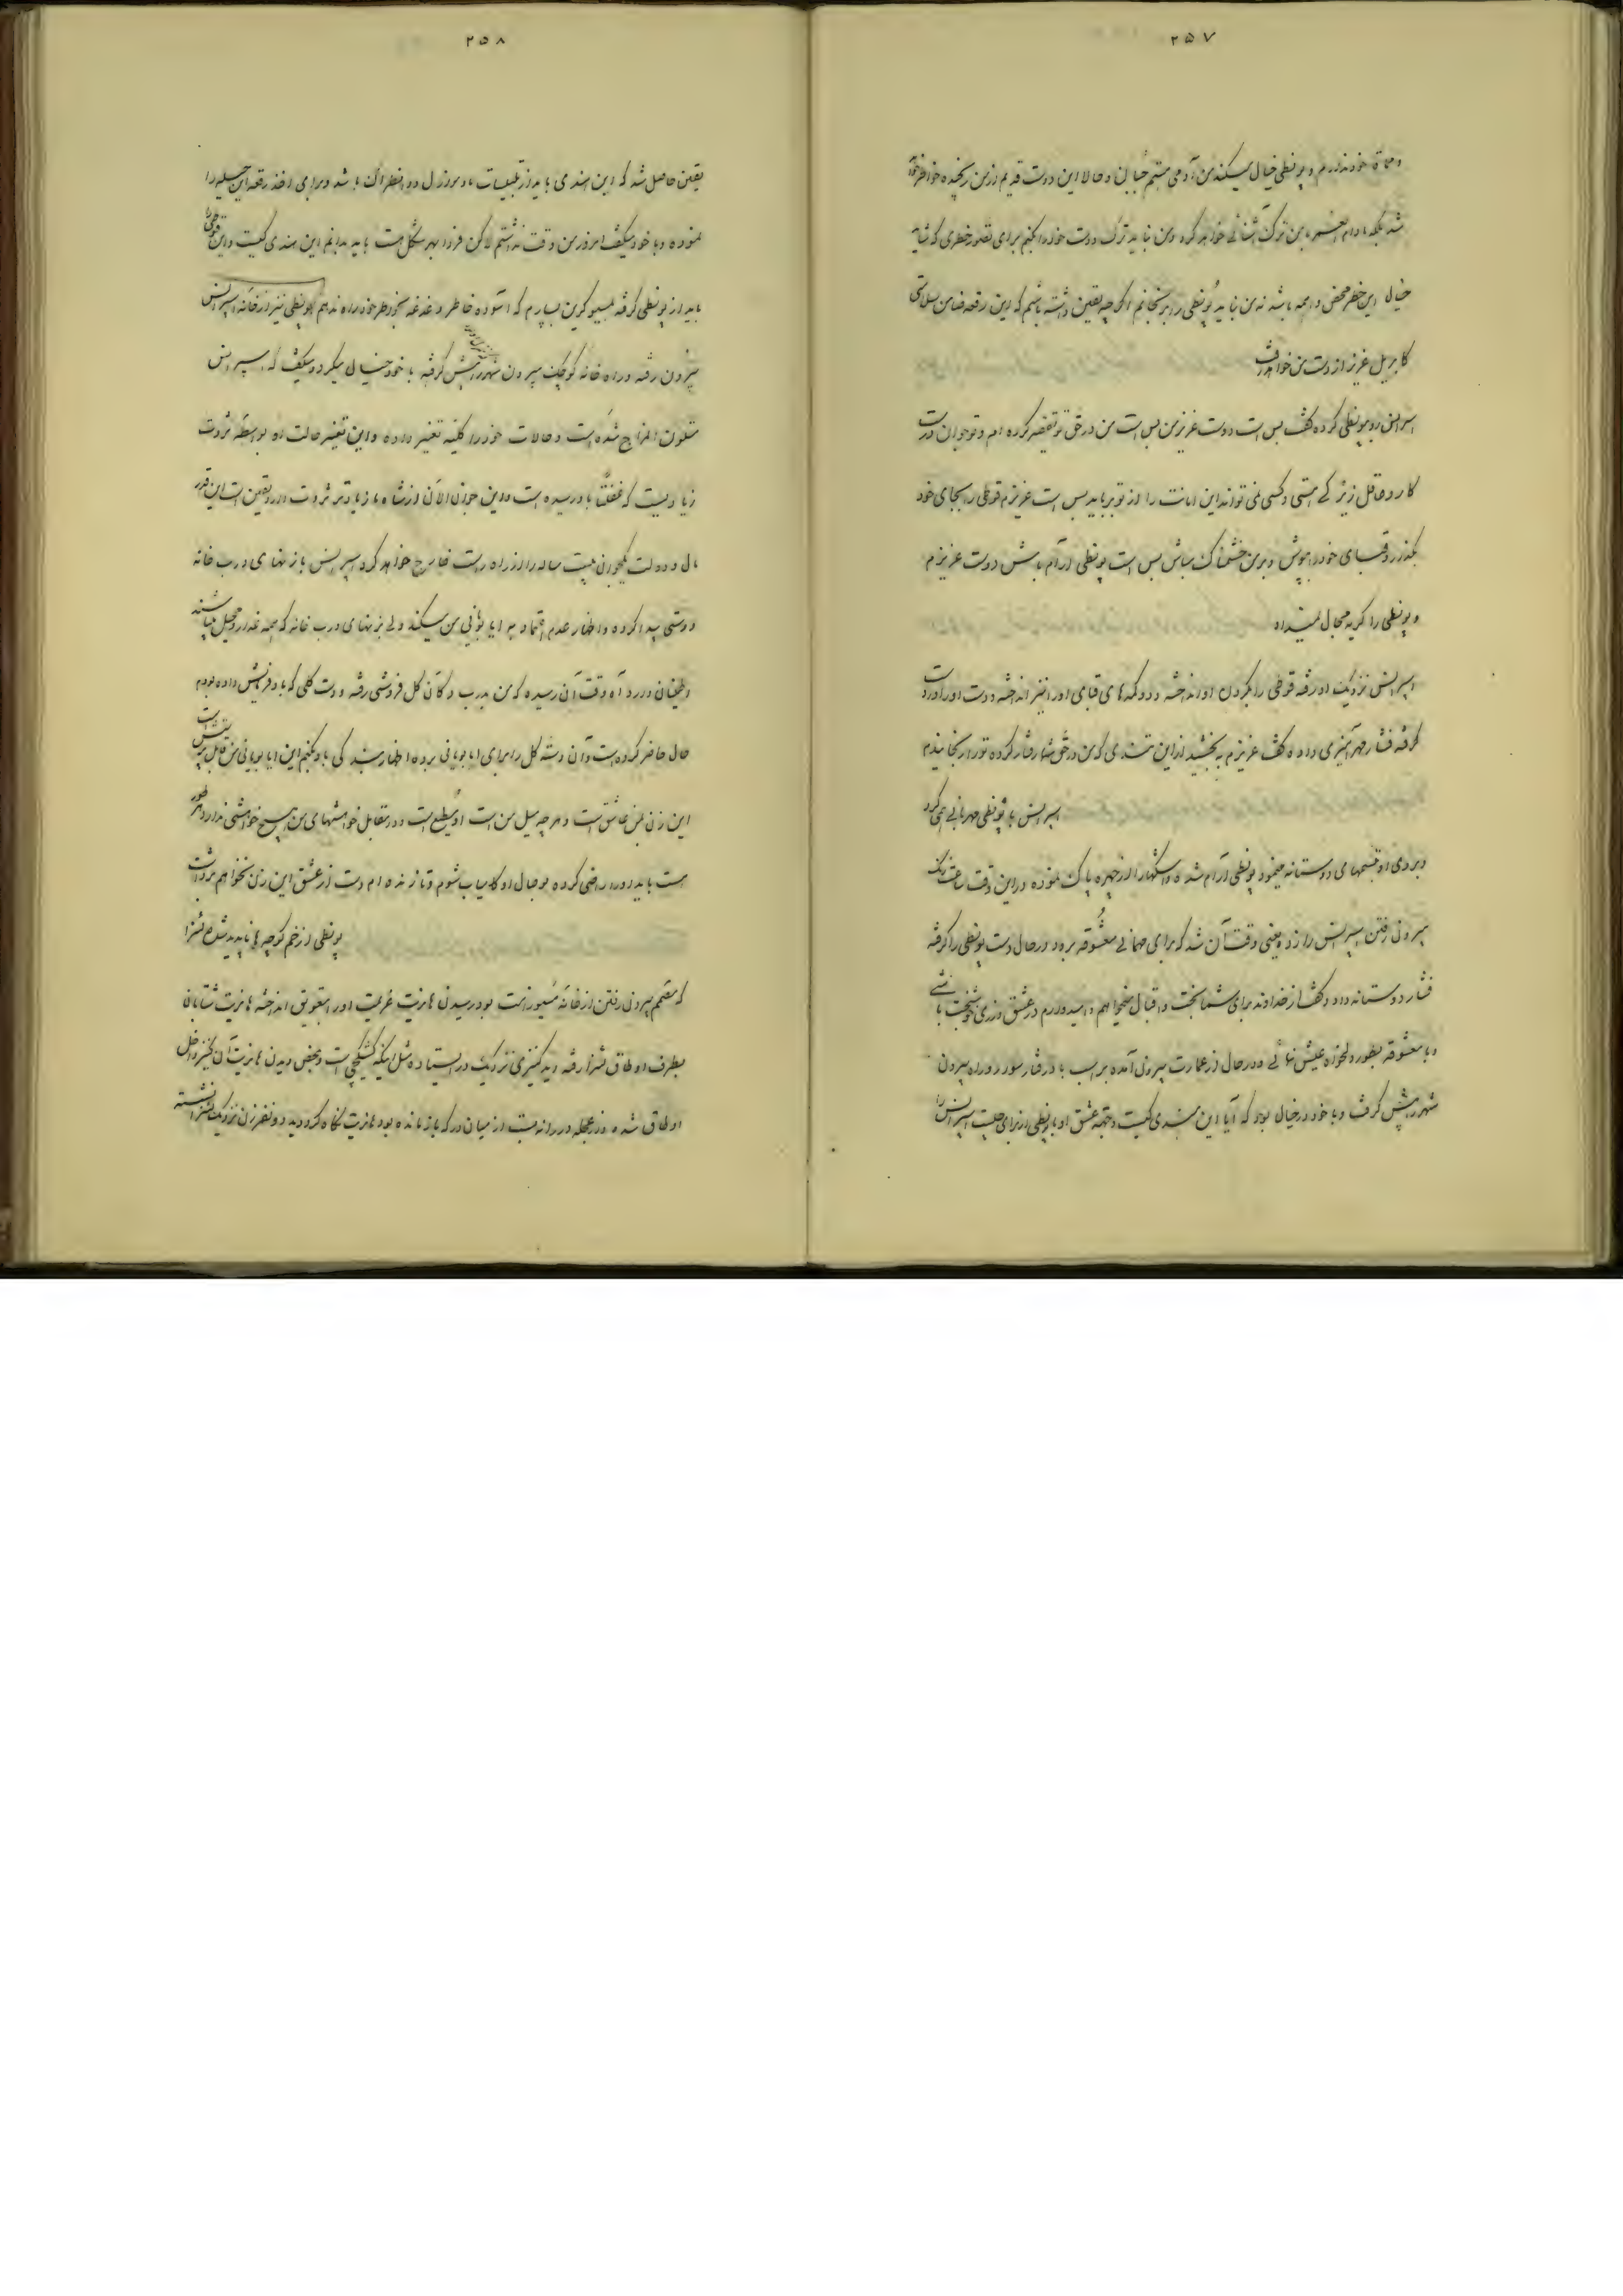 ۲۵۷
خود ندارم و پونطی خیال میکند من آدمی هستم و حالا این دوست قدیم از من رنجیده خواهد
شد بلکه مادام العمر با من ترک آشنائی خواهد کرد و من نباید ترک دوست خود را بکنم برای تصور خطری که شاید
خیال این خطر محض واهمه باشد نه من نباید پونطی را برنجانم اگر چه یقین داشته باشم که این رقعه ضامن سلامتی
کابریل عزیز از دست من خواهد رفت
اسپرانس رو به پونطی کرده گفت بس است دوست عزیز من بس است من در حق تو تقصیر کرده‌ام و تو جوان درست
کار و عاقل زیرکی هستی و کسی نمی‌تواند این امانت را از تو برباید بس است عزیزم قوطی را بجای خود
بگذار و قبای خود را بپوش و بر من خشمناک مباش بس است پونطی آرام باش دوست عزیزم
و پونطی را گریه مجال نمیداد
اسپرانس نزدیک او رفته قوطی را بگردن او انداخته و دوکمه‌های قبای او را نیز انداخته و دست او را در دست
گرفته فشار مهرآمیزی داده گفت عزیزم ببخشید از این تندی که من در حق شما رفتار کرده تو را رنجانیدم
اسپرانس با پونطی مهربانی همی کرد
و بروی او تبسمهای دوستانه مینمود پونطی آرام شده و اشکها را از چهره پاک نموده در این وقت ساعت زنگ
بیرونی رفتن اسپرانس را زد یعنی وقت آن شد که برای مهمانی معشوقه برود در حال دست پونطی را گرفته
فشار دوستانه داد و گفت از خداوند برای شما بخت و اقبال میخواهم و امیدوارم در عشق ورزی خوشبخت باشی
و با معشوقه بطور دلخواه عیش نمائی و در حال از عمارت بیرون آمده بر اسب بادرفتار سوار و راه بیرون
شهر را پیش گرفت و با خود در خیال بود که آیا این هندی کیست و جعبه عشق او با پونطی از برای جلب اسپرانس را
۲۵۸
یقین حاصل شد که این هندی باید از تبعیات ماد مروزل دو انطراک باشد و برای اخذ رقعه این حیله را
نموده و با خود میگفت امروز من وقت نداشتم لاکن فردا بهر شکل هست باید بدانم این هندی کیست و این قوطی را
باید از پونطی گرفته بمسیو کرین بسپارم که آسوده خاطر و دغدغه بخود راه ندهم پونطی نیز از خانه اسپرانس
بیرون رفته و راه خانه کوچک بیرون شهر را پیش گرفته با خود خیال میکرد و میگفت که اسپرانس
متلون المزاج شده است و حالات خود را کلیه تغییر داده و این تغییر حالت او بواسطه ثروت
زیادیست که غفلتاً باو رسیده است و این جوان الآن از شاه ما زیادتر ثروت دارد یقین است این قدر
مال و دولت یکجوان بیست ساله را از راه راست خارج خواهد کرد اسپرانس با زنهای درب خانه
دوستی پیدا کرده و اظهار عدم اعتماد به ایابوبانی من میکند ولی بزنهای درب خانه که همه غدار و محیل میباشند
اطمینان دارد آه وقت آن رسیده که من بدرب دکان گل فروشی رفته و دسته گلی که باو فرمایش داده بودم
حال حاضر کرده است و آن دسته گل را برای ایابوبانی برده اظهار بندگی باو بکنم این ایابوبانی من قابل پرستش است
این زن بمن عاشق است و هر چه میل من است او مطیع است و در مقابل خواهشهای من هیچ خواهشی ندارد هر طور
هست باید او را راضی کرده بوصال او کامیاب شوم و تا زنده‌ام دست از عشق این زن نخواهم برداشت
پونطی از خم کوچه‌ها ناپدید شد نزا
که مصمم بیرون رفتن از خانه مسیو رانت بود رسیدن هانریت عزیمت او را بتعویق انداخته هانریت شتابان
بطرف اوطاق نزا رفته دید کنیزی نزدیک در ایستاده مثل اینکه کشیکچی است و بمحض دیدن هانریت آن کنیز داخل
اوطاق شد و از عجله در را نه بست از میان در که باز مانده بود هانریت نگاه کرد و دید دو نفر زن نزدیک نزا نشسته